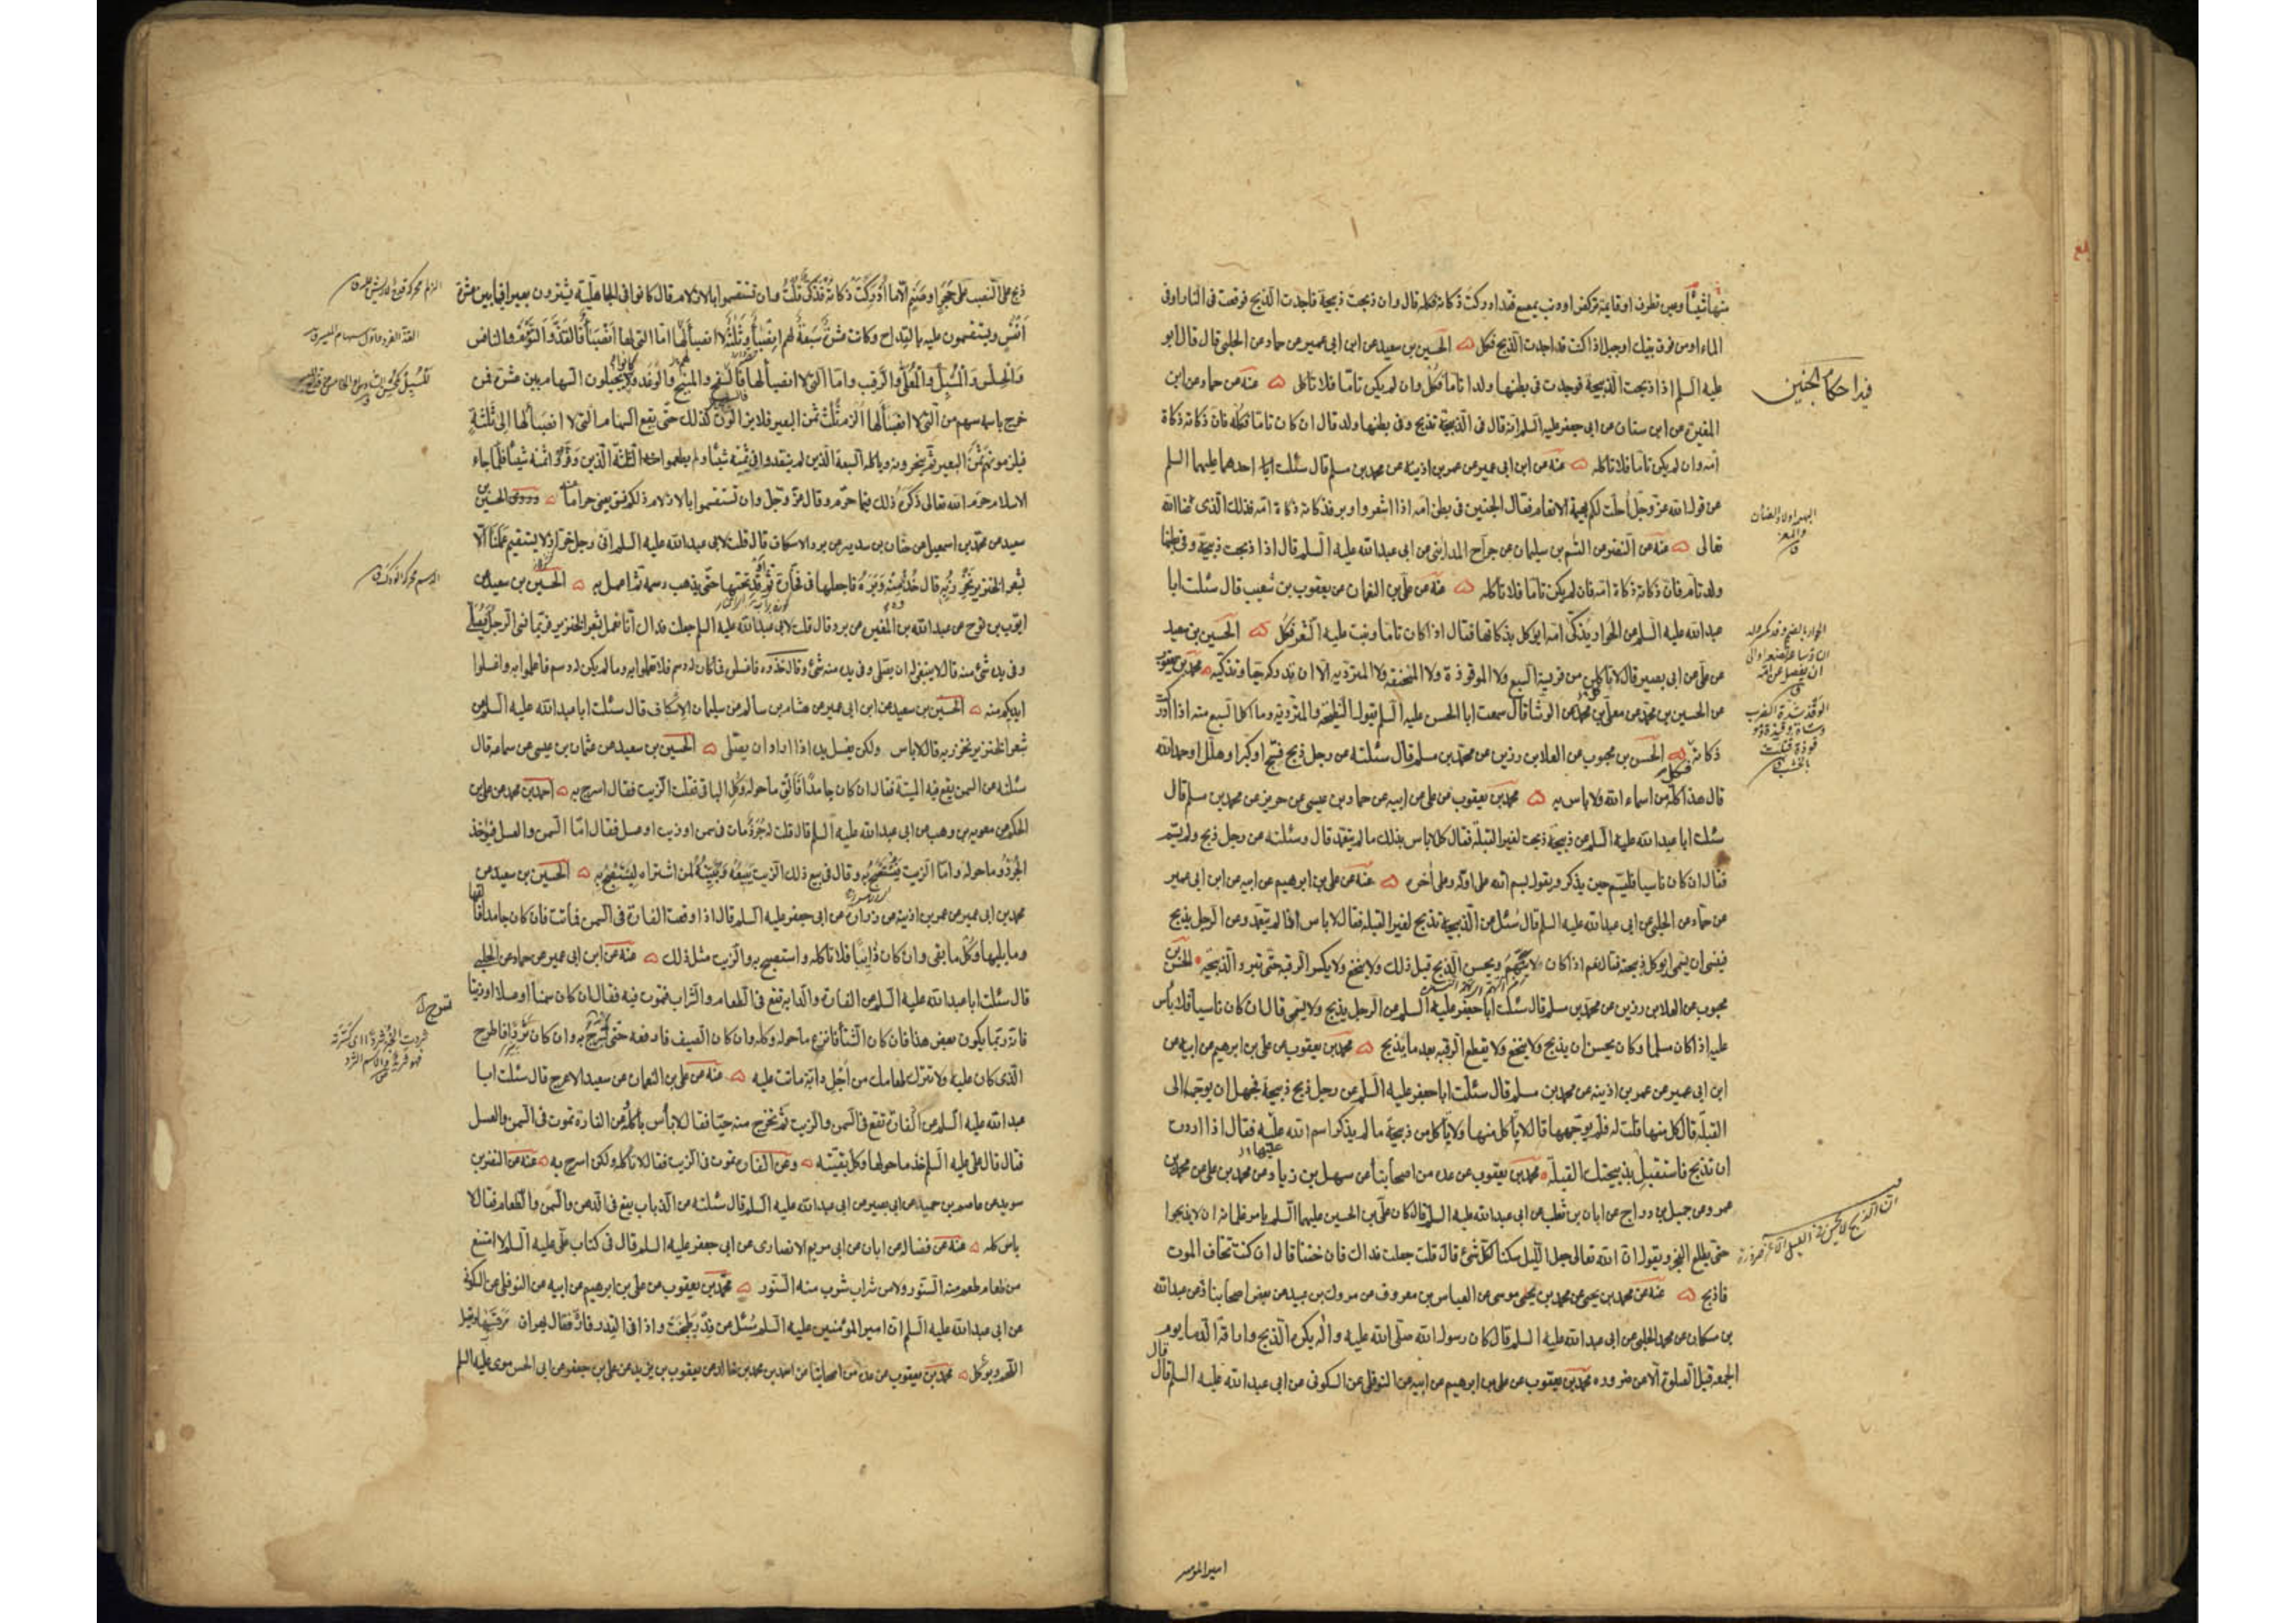 منها شيئا وعين تطرف او قايمة تركض او ذنب يمصع فقد ادركت ذكاته فكله قال وان ذبحت ذبيحة فاجدت الذبح فوقعت في النار او في
الماء او من فوق بيتك او جبل اذا كنت قد اجدت الذبح فكل الحسين بن سعيد عن ابن ابي عمير عن حماد عن الحلبي قال قال ابو
عليه السلم اذا ذبحت الذبيحة فوجدت في بطنها ولدا تاما فكل وان لم يكن تاما فلا تاكل عنه عن حماد عن ابن
المغيرة عن ابن سنان عن ابي جعفر عليه السلم انه قال في الذبيحة تذبح وفي بطنها ولد قال ان كان تاما فكله فان ذكاته ذكاة
امه وان لم يكن تاما فلا تاكله عنه عن ابن ابي عمير عن عمر بن اذينة عن محمد بن مسلم قال سئلت احدهما عليهما السلم
عن قول الله عز وجل احلت لكم بهيمة الانعام فقال الجنين في بطن امه اذا اشعر واوبر فذكاته ذكاة امه فذلك الذي عنا الله
تعالى عنه عن النضر عن القسم بن سليمان عن جراح المدايني عن ابي عبدالله عليه السلم قال اذا ذبحت ذبيحة وفي بطنها
ولد تام فان ذكاته ذكاة امه فان لم يكن تاما فلا تاكله عنه عن علي بن النعمان عن يعقوب بن شعيب قال سئلت ابا
عبدالله عليه السلم عن الحوار يذكى امه ايؤكل بذكاتها فقال اذا كان تاما ونبت عليه الشعر فكل الحسين بن سعيد
عن علي عن ابي بصير قال لا تاكل من فريسة السبع ولا الموقوذة ولا المنخنقة ولا المتردية الا ان تدركه حيا وتذكيه محمد بن يعقوب
عن الحسين بن محمد عن معلى بن محمد عن الوشا قال سمعت ابا الحسن عليه السلم يقول النطيحة والمتردية وما اكل السبع منه اذا ادركت
ذكاته فكل الحسن بن محبوب عن العلا بن رزين عن محمد بن مسلم قال سئلته عن رجل ذبح فسبح او كبر او هلل او حمد الله
قال هذا كله من اسماء الله ولا باس به محمد بن يعقوب عن علي عن ابيه عن حماد بن عيسى عن حريز عن محمد بن مسلم قال
سئلت ابا عبدالله عليه السلم عن ذبيحة ذبحت لغير القبلة فقال كل لا باس بذلك ما لم يتعمد قال وسئلته عن رجل ذبح ولم يسم
فقال ان كان ناسيا فليسم حين يذكر ويقول بسم الله على اوله وعلى آخره عنه عن علي بن ابرهيم عن ابيه عن ابن ابي عمير
عن حماد عن الحلبي عن ابي عبدالله عليه السلم قال سئل عن الذبيحة تذبح لغير القبلة فقال لا باس اذا لم يتعمد وعن الرجل يذبح
فينسى ان يسمى ايؤكل ذبيحته فقال نعم اذا كان لا يتهم ويحسن الذبح قبل ذلك ولا ينخع ولا يكسر الرقبة حتى تبرد الذبيحة الحسن بن
محبوب عن العلا بن رزين عن محمد بن مسلم قال سئلت ابا جعفر عليه السلم عن الرجل يذبح ولا يسمى قال ان كان ناسيا فلا باس
عليه اذا كان مسلما وكان يحسن ان يذبح ولا ينخع ولا يقطع الرقبة بعد ما يذبح محمد بن يعقوب عن علي بن ابرهيم عن ابيه عن
ابن ابي عمير عن عمر بن اذينه عن محمد بن مسلم قال سئلت ابا جعفر عليه السلم عن رجل ذبح ذبيحة فجهل ان يوجهها الى
القبلة قال كل منها قلت له فلم يوجهها قال لا ياكل منها ولا ياكل من ذبيحة ما لم يذكر اسم الله عليه فقال اذا اردت
ان تذبح فاستقبل بذبيحتك القبلة محمد بن يعقوب عن عدة من اصحابنا عن سهل بن زياد وعن محمد بن علي عن محمد بن
عمرو عن جميل بن دراج عن ابان بن تغلب عن ابي عبدالله عليه السلم قال كان علي بن الحسين عليهما السلم يامر غلمانه ان لا يذبحوا
حتى يطلع الفجر ويقول ان الله تعالى جعل الليل سكنا لكل شئ قال قلت جعلت فداك فان خفنا قال ان كنت تخاف الموت
فاذبح عنه عن محمد بن يحيى عن محمد بن يحيى موسى عن العباس بن معروف عن مروك بن عبيد عن بعض اصحابنا عن عبدالله
بن مسكان عن محمد الحلبي عن ابي عبدالله عليه السلم قال كان رسول الله صلى الله عليه وآله يكره الذبح واراقة الدماء يوم
الجمعة قبل الصلوة الا من ضرورة محمد بن يعقوب عن علي بن ابرهيم عن ابيه عن النوفلي عن السكوني عن ابي عبدالله عليه السلم قال قال
فيه احكام الجنين
البهم اولاد الضان والمعز
امير المومنين
ذبح على النصب على حجر او صنم الا ما ادركت ذكاته فذكى قلت وان تستقسموا بالازلام قال كانوا في الجاهلية يشترون بعيرا فيما بين عشرة
انفس ويستقسمون عليه بالقداح وكانت عشرة سبعة لهم انصباء وثلثة لا انصباء لها اما التي لها انصباء فالفذ والتوءم والنافس
والحلس والمسبل والمعلى والرقيب واما التي لا انصباء لها فالسفيح والمنيح والوغد وكانوا يجيلون السهام بين عشرة فمن
خرج باسمه سهم من التي لا انصباء لها الزم ثلث ثمن البعير فلا يزالون كذلك حتى يقع السهام التي لا انصباء لها الى ثلثة
فيلزمونهم ثمن البعير ثم ينحرونه وياكله السبعة الذين لم ينقدوا في ثمنه شيئا ولم يطعموا منه الثلثة الذين وفروا ثمنه شيئا فلما جاء
الاسلام حرم الله تعالى ذكره ذلك فيما حرم وقال عز وجل وان تستقسموا بالازلام ذلكم فسق يعني حراما وروى الحسين بن
سعيد عن محمد بن اسمعيل عن حنان بن سدير عن برد الاسكاف قال قلت لابي عبدالله عليه السلم اني رجل خراز لا يستقيم عملنا الا
بشعر الخنزير نخرز به قال خذ منه وبره فاجعلها في فخارة ثم اوقد تحتها حتى يذهب دسمه ثم اعمل به الحسين بن سعيد عن
ايوب بن نوح عن عبدالله بن المغيرة عن برد قال قلت لابي عبدالله عليه السلم جعلت فداك انا نعمل بشعر الخنزير فربما نسى الرجل فصلى
وفي يده شئ منه قال لا ينبغي له ان يصلي وفي يده منه شئ وقال خذوه فاغسلوه فما كان له دسم فلا تعملوا به وما لم يكن له دسم فاعملوا به واغسلوا
ايديكم منه الحسين بن سعيد عن ابن ابي عمير عن هشام بن سالم عن سليمان الاسكاف قال سئلت ابا عبدالله عليه السلم عن
شعر الخنزير نخرز به قال لا باس ولكن يغسل يده اذا اراد ان يصلي الحسين بن سعيد عن عثمان بن عيسى عن سماعه قال
سئلته عن السمن يقع فيه الميتة فقال ان كان جامدا فالق ما حوله وكل الباقي فقلت الزيت فقال اسرج به احمد بن محمد عن علي بن
الحكم عن معوية بن وهب عن ابي عبدالله عليه السلم قال قلت له جرذ مات في سمن او زيت او عسل فقال اما السمن والعسل فيؤخذ
الجرذ وما حوله واما الزيت يستصبح به وقال في بيع ذلك الزيت يبيعه ويبينه لمن اشتراه ليستصبح به الحسين بن سعيد عن
محمد بن ابي عمير عن عمر بن اذينة عن زرارة عن ابي جعفر عليه السلم قال اذا وقعت الفارة في السمن فماتت فان كان جامدا فالقها
وما يليها وكل ما بقى وان كان ذائبا فلا تاكله واستصبح به والزيت مثل ذلك عنه عن ابن ابي عمير عن حماد عن الحلبي
قال سئلت ابا عبدالله عليه السلم عن الفارة والدابة تقع في الطعام والشراب فتموت فيه فقال ان كان سمنا او عسلا او زيتا
فانه ربما يكون بعض هذا فان كان الشتاء فانزع ما حوله وكله وان كان الصيف فادفعه حتى تسرج به وان كان ثردا فاطرح
الذي كان عليه ولا تترك طعامك من اجل دابة ماتت عليه عنه عن علي بن النعمان عن سعيد الاعرج قال سئلت ابا
عبدالله عليه السلم عن الفارة تقع في السمن والزيت ثم تخرج منه حيا فقال لا باس باكله وعن الفارة تموت في السمن والعسل
فقال قال علي عليه السلم خذ ما حولها وكل بقيته وعن الفارة تموت في الزيت فقال لا تاكله ولكن اسرج به عنه عن النضر بن
سويد عن عاصم بن حميد عن ابي بصير عن ابي عبدالله عليه السلم قال سئلته عن الذباب يقع في الدهن والسمن والطعام فقال لا
باس كله عنه عن فضالة عن ابان عن ابي مريم الانصاري عن ابي جعفر عليه السلم قال في كتاب علي عليه السلم لا امتنع
من طعام طعم منه السنور ولا من شراب شرب منه السنور محمد بن يعقوب عن علي بن ابرهيم عن ابيه عن النوفلي عن السكوني
عن ابي عبدالله عليه السلم ان امير المومنين عليه السلم سئل عن قدر طبخت واذا في القدر فارة فقال يهراق مرقتها ويغسل
اللحم ويؤكل محمد بن يعقوب عن عدة من اصحابنا عن احمد بن محمد بن خالد عن يعقوب بن يزيد عن علي بن جعفر عن ابي الحسن موسى عليه السلم